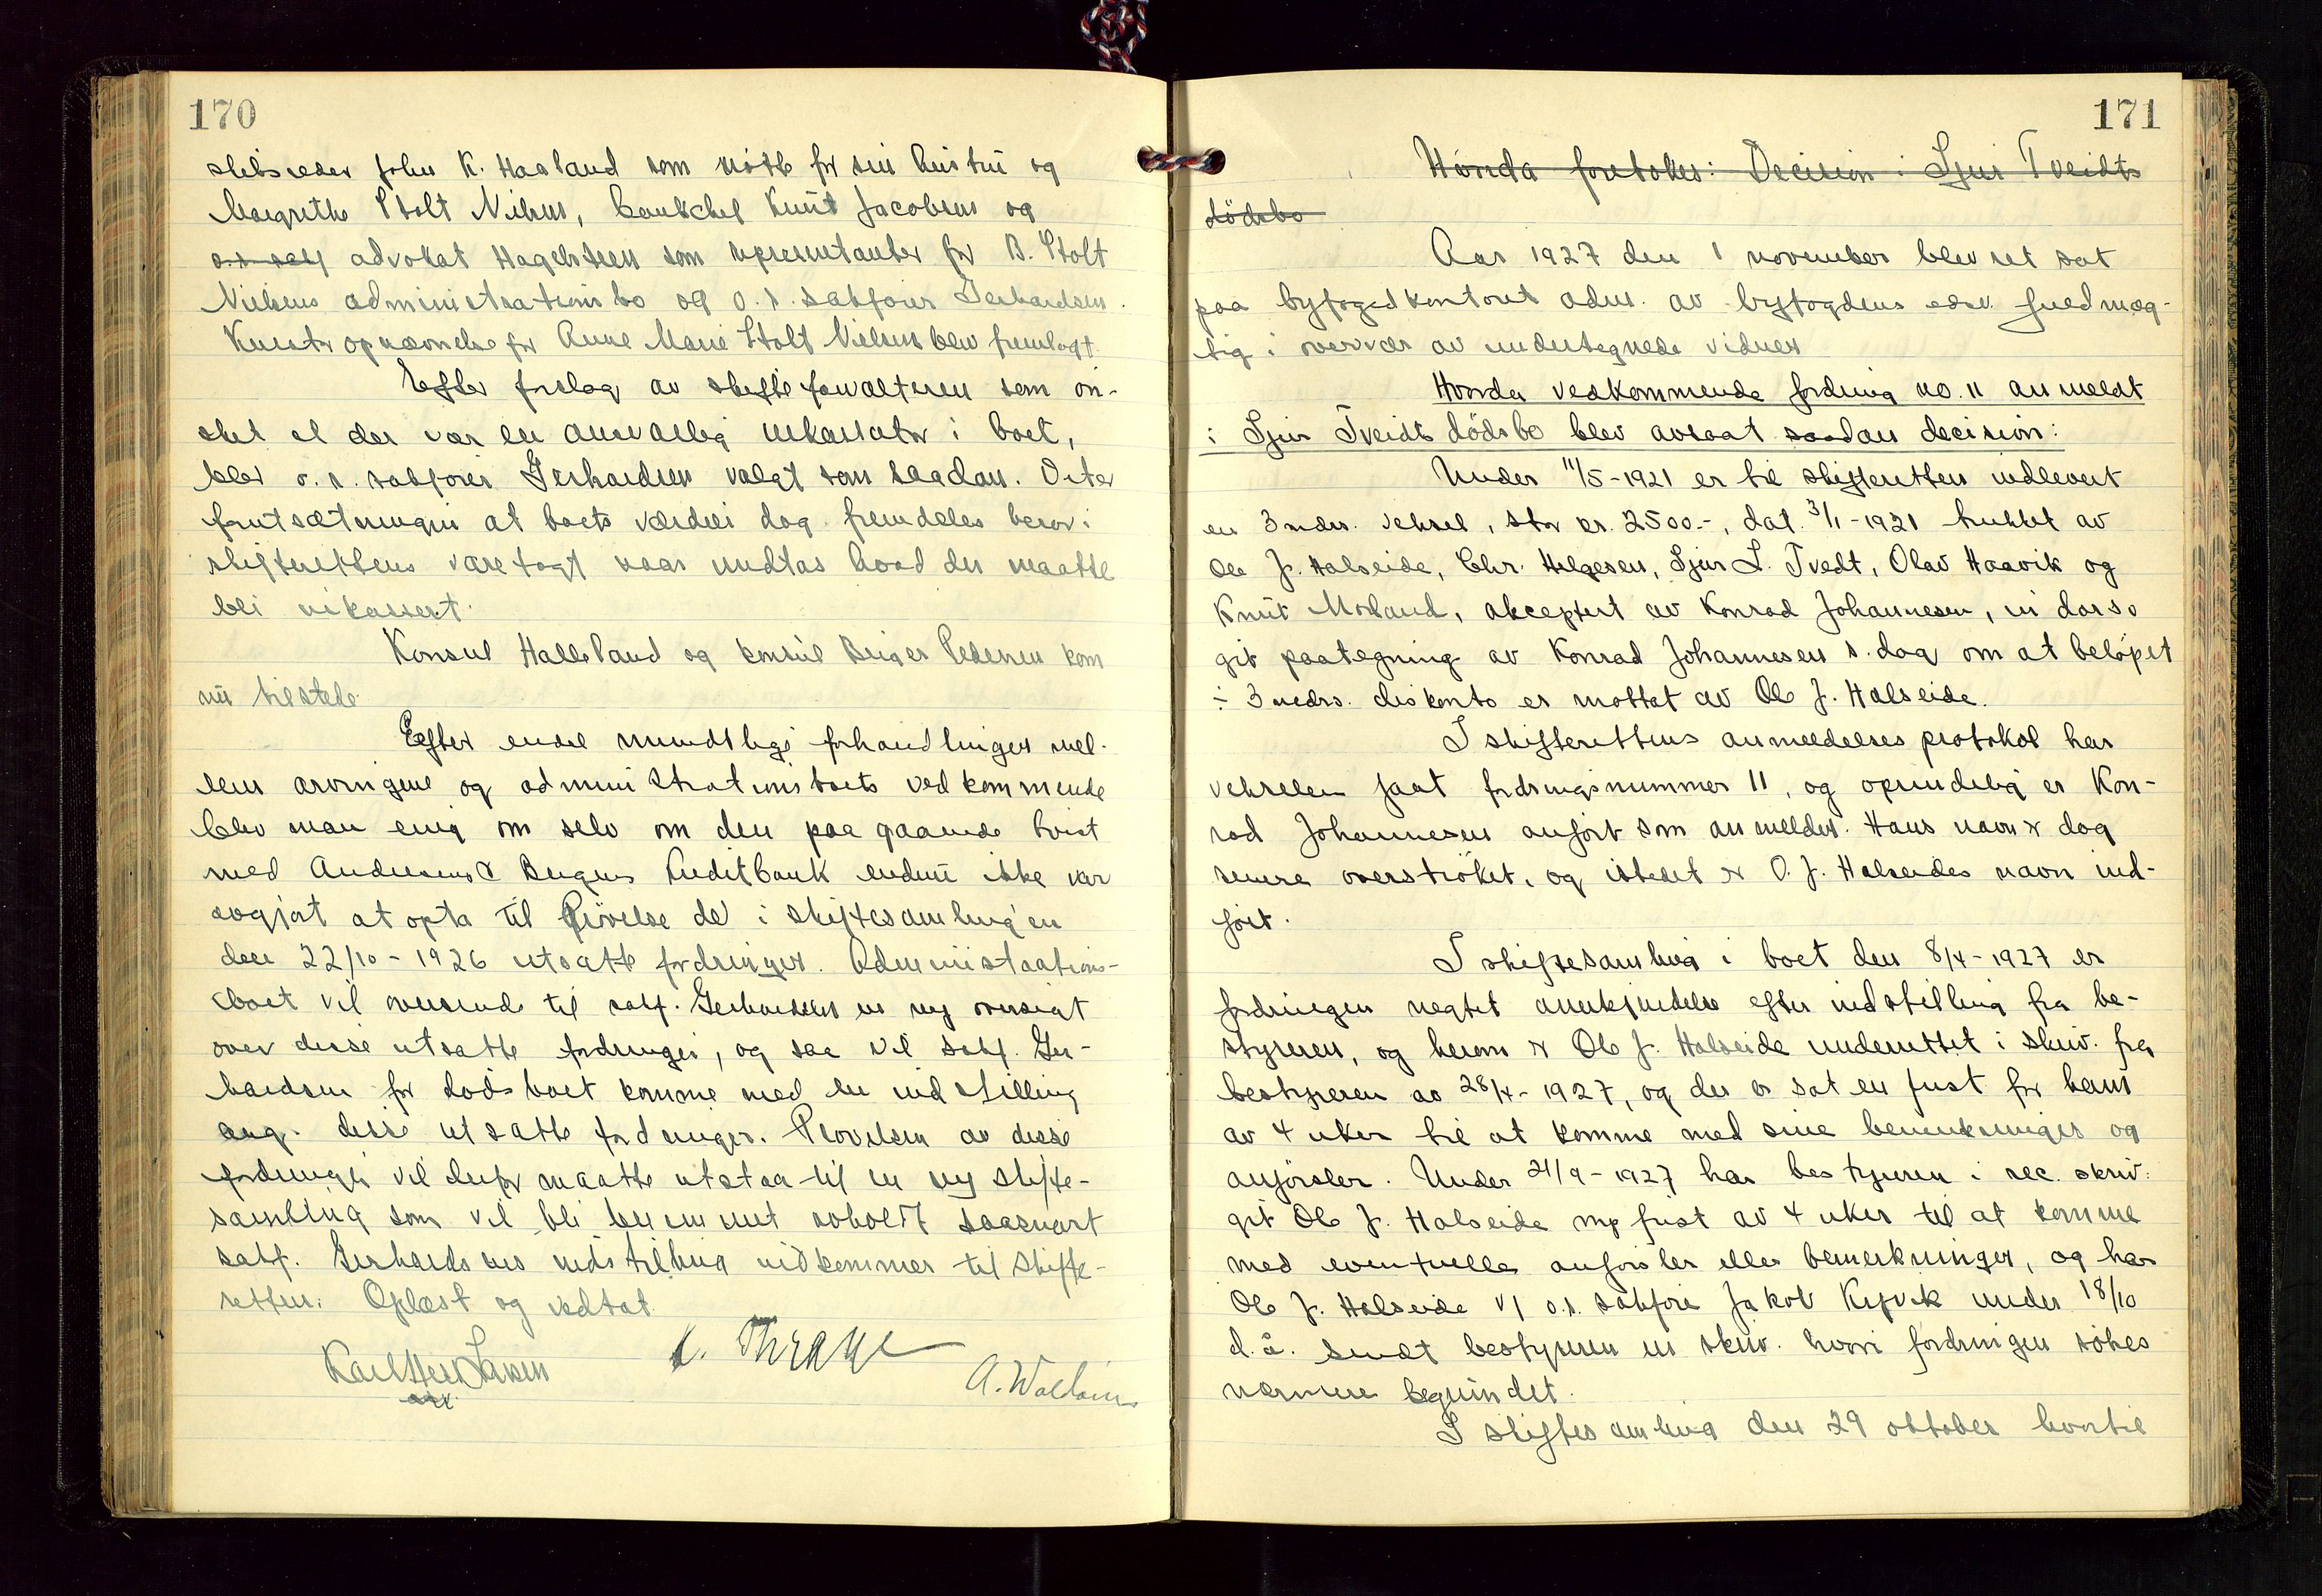 170
skibsreder John K. Haaland som møtte for sin hustru og
Margrethe Stolt Nielsen, bankchef Knut Jacobsen og
advokat Hagelsteen som representanter for B. Stolt
Nielsens administrationsbo og o.r. sakfører Gerhardsen.
Kurator opnævnelse for Anne Marie Stolt Nielsen blev fremlagt.
Efter forslag av skifteforvalteren som øn-
sket at der var en ansvarlig inkassator i boet,
blev o.r. sakfører Gerhardsen valgt som saadan. Dette
forutsætningen at boets værdier dog fremdeles beror i
skifterettens varetægt naar undtas hvad der maatte
bli inkassert.
Konsul Halleland og konsul Birger Pedersen kom
nu tilstede.
Efter endel mundtlige forhandlinger mel-
lem arvingene og administrationsboets vedkommende
blev man enig om selv om den paagaaende tvist
med Andresens & Bergens Kreditbank endnu ikke var
avgjort at opta til prøvelse de i skiftesamlingen
den 22/10-1926 utsatte fordringer. Administrations-
boet vil oversende til sakf. Gerhardsen en ny oversigt
over disse utsatte fordringer, og saa vil sakf. Ger-
hardsen for dødsboet komme med en indstilling
ang. disse utsatte fordringer. Prøvelsen av disse
fordringer vil derfor maatte utstaa til en ny skifte-
samling som vil bli berammet avholdt saasnart
sakf. Gerhardsens indstilling indkommer til skifte-
retten. Oplæst og vedtat.
K. Thrane
A. Wallain
171
Hvorda foretokes: Decision i Sjur Tveidts
dödsbo
Aar 1927 den 1 november blev ret sat
paa byfogedkontoret adm. av byfogdens edsv. fuldmæg-
tig i overvær av undertegnede vidner
Hvorda vedkommende fordring no. 11 anmeldt
i Sjur Tveidts dödsbo blev avsaat saadan decision:
Under 11/5-1921 er til skifteretten indlevert
en 3 mdrs. veksel, stor kr. 2500.-, dat. 3/1-1921 trukket av
Ole J. Halseide, Chr. Helgesen, Sjur L. Tvedt, Olav Haavik og
Knut Morland, akceptert av Konrad Johannesen, in dorso
git paategning av Konrad Johannesen s. dag om at beløpet
÷ 3 mdrs. diskonto er mottat av Ole J. Halseide.
I skifterettens anmeldelsesprotokol har
vekselen faat fordringsnummer 11, og oprindelig er Kon-
rad Johannesen anført som anmelder. Hans navn er dog
senere overstrøket, og istedet er O. J. Halseides navn ind-
ført.
I skiftesamling i boet den 8/4-1927 er
fordringen negtet anerkjendelse efter indstilling fra be-
styreren, og herom er Ole J. Halseide underrettet i skriv. fra
bestyreren av 28/4-1927, og der er sat en frist for ham
av 4 uker til at komme med sine bemerkninger og
anførsler. Under 21/9-1927 har bestyreren i rec. skriv.
git Ole J. Halseide ny frist av 4 uker til at komme
med eventuelle anførsler eller bemerkninger, og har
Ole J. Halseide v/ o.r. sakfører Jakob Kyvik under 18/10
d.å. sendt bestyreren en skriv. hvori fordringen søkes
nærmere begrundet.
I skiftesamling den 29 oktober hvortil